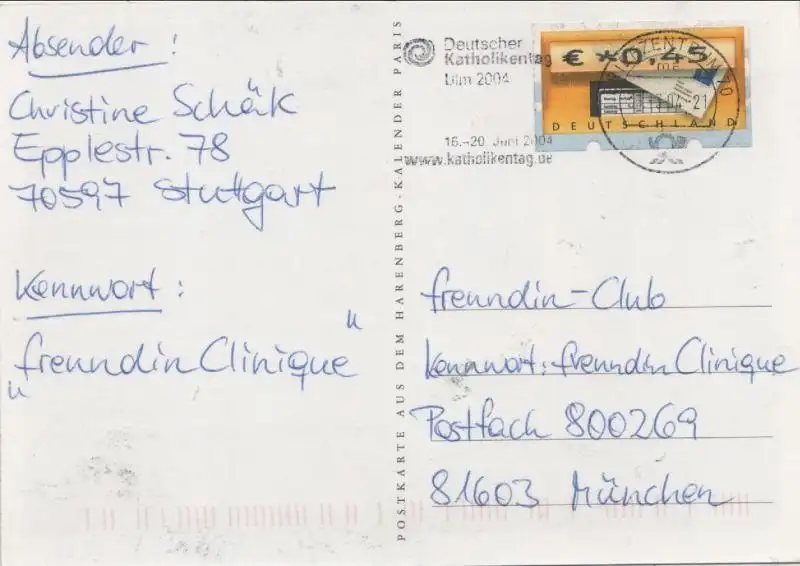 Absender!
Christine Schäk
Epplestr. 78
70597 Stuttgart
Kennwort:
"freundin Clinique"
POSTKARTE AUS DEM HARENBERG-KALENDER PARIS
Deutscher
Katholikentag
Ulm 2004
16.-20. Juni 2004
www.katholikentag.de
€ *0,45
DEUTSCHLAND
freundin-Club
Kennwort: freundin Clinique
Postfach 800269
81603 München